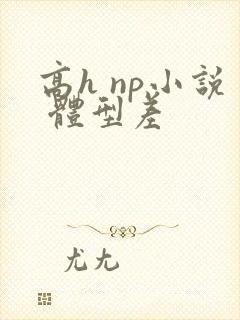 高h np 小説
體型差
尤尤